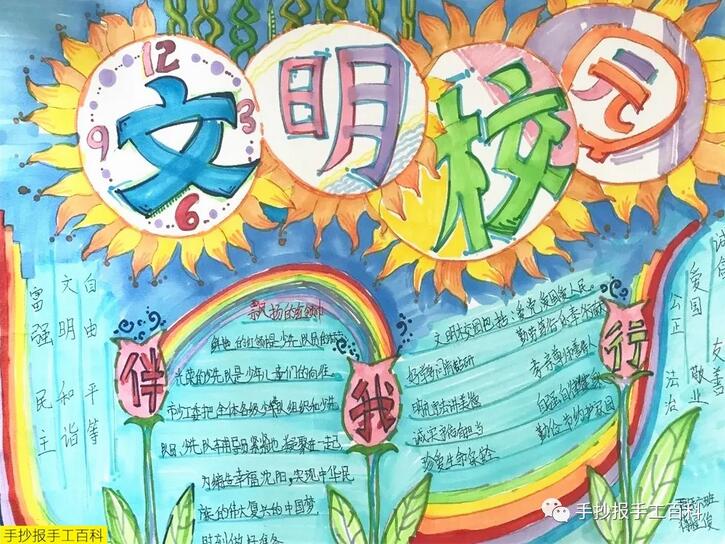 文明校园
12
9 3
6
伴我行
自由 平等
文明 和谐
富强 民主
飘扬的红领巾
鲜艳的红领巾是少先队员的
光荣的少先队是少年儿童们的向往
市少工委把全体各级少先队组织和少先
队员、少先队辅导员紧紧地凝聚在一起
为缔造幸福沈阳,实现中华民
族的伟大复兴的中国梦
时刻做好准备
文明校园包括:爱党爱国爱人民。
勤劳笃行乐奉献
好学多问肯钻研
孝亲尊师善待人
明礼守法讲美德
自强自律健身心
诚实守信有担当
勤俭节约护家园
珍爱生命保安全
诚信 友善
爱国 敬业
公正 法治
手抄报手工百科
手抄报手工百科